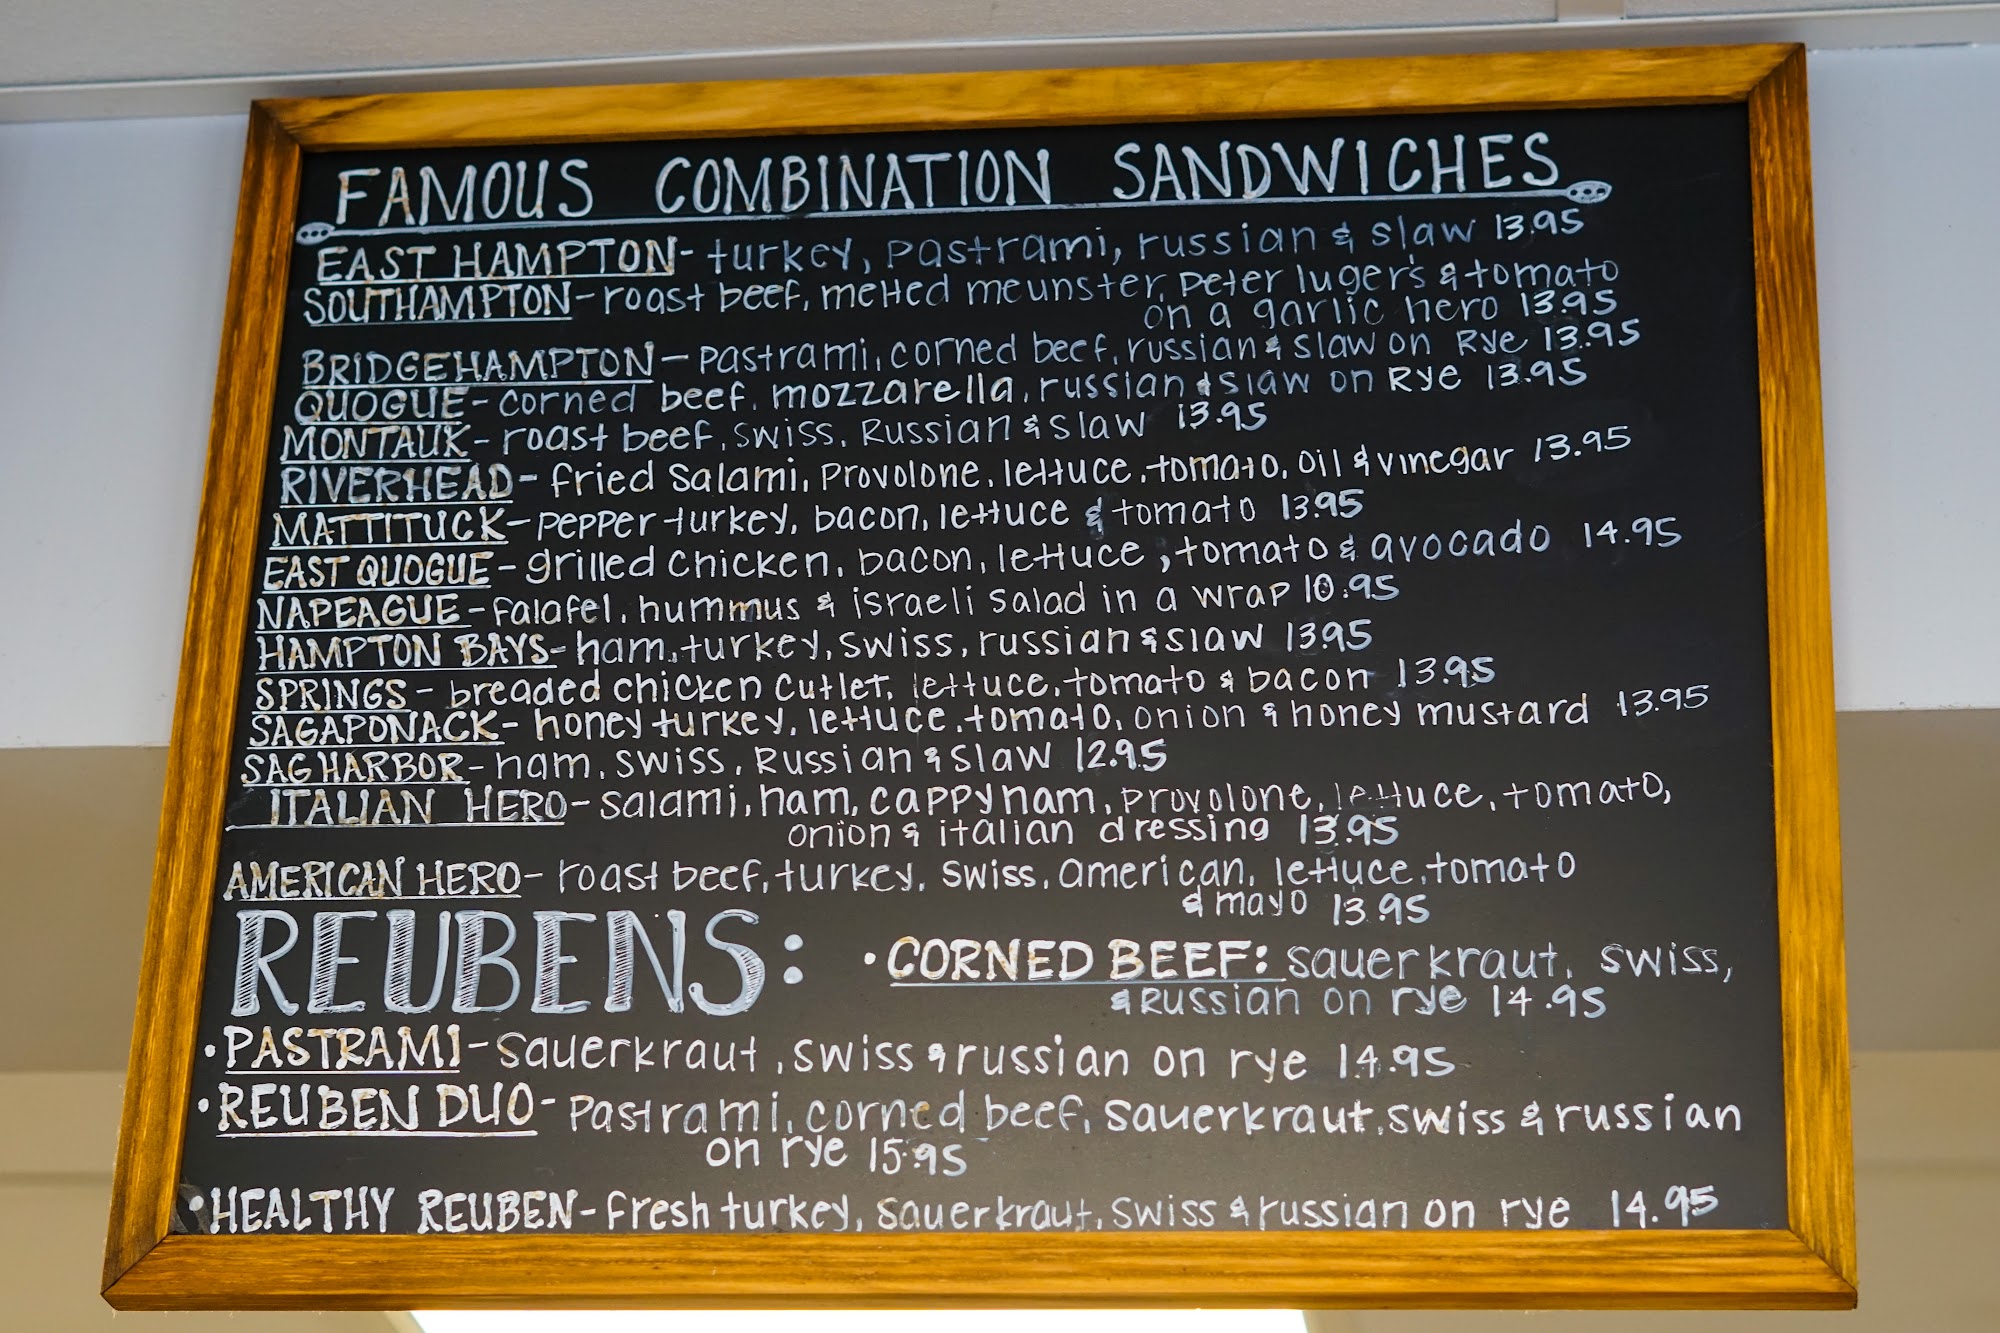 FAMOUS COMBINATION SANDWICHES
EAST HAMPTON- turkey, pastrami, russian & slaw 13.95
SOUTHAMPTON- roast beef, melted meunster, peter luger's & tomato
on a garlic hero 13.95
BRIDGEHAMPTON- pastrami, corned beef, russian & slaw on Rye 13.95
QUOGUE- corned beef, mozzarella, russian & slaw on Rye 13.95
MONTAUK- roast beef, swiss, Russian & slaw 13.95
RIVERHEAD- fried salami, provolone, lettuce, tomato, oil & vinegar 13.95
MATTITUCK- pepper turkey, bacon, lettuce & tomato 13.95
EAST QUOGUE- grilled chicken, bacon, lettuce, tomato & avocado 14.95
NAPEAGUE- falafel, hummus & israeli salad in a wrap 10.95
HAMPTON BAYS- ham, turkey, swiss, russian & slaw 13.95
SPRINGS- breaded chicken cutlet, lettuce, tomato & bacon 13.95
SAGAPONACK- honey turkey, lettuce, tomato, onion & honey mustard 13.95
SAG HARBOR- ham, swiss, Russian & slaw 12.95
ITALIAN HERO- salami, ham, cappy ham, provolone, lettuce, tomato,
onion & italian dressing 13.95
AMERICAN HERO- roast beef, turkey, swiss, american, lettuce, tomato
& mayo 13.95
REUBENS: • CORNED BEEF: sauerkraut, swiss,
& Russian on rye 14.95
• PASTRAMI- sauerkraut, swiss & russian on rye 14.95
• REUBEN DUO- pastrami, corned beef, sauerkraut, swiss & russian
on rye 15.95
• HEALTHY REUBEN- fresh turkey, sauerkraut, swiss & russian on rye 14.95